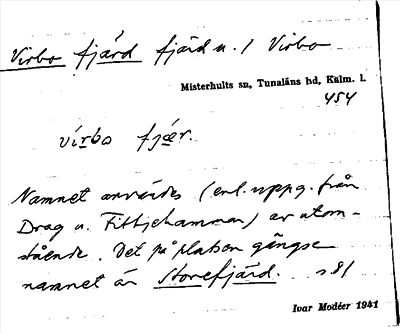 Virbo fjärd fjärd n. / Virbo
Misterhults sn, Tunaläns hd, Kalm. l.
454
vírbo fjǽr.
Namnet användes (enl. uppg. från
Drag o. Fittjehammar) av utom-
stående. Det på platsen gängse
namnet är Storefjärd. s 81
Ivar Modéer 1941